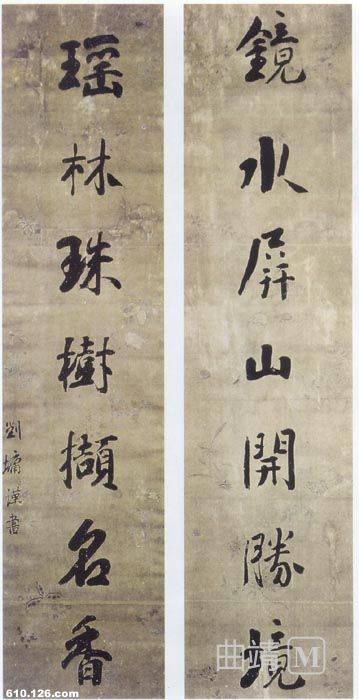 鏡水屏山開勝境
瑶林珠樹擷名香
劉墉漢書
610.126.com
曲靖M